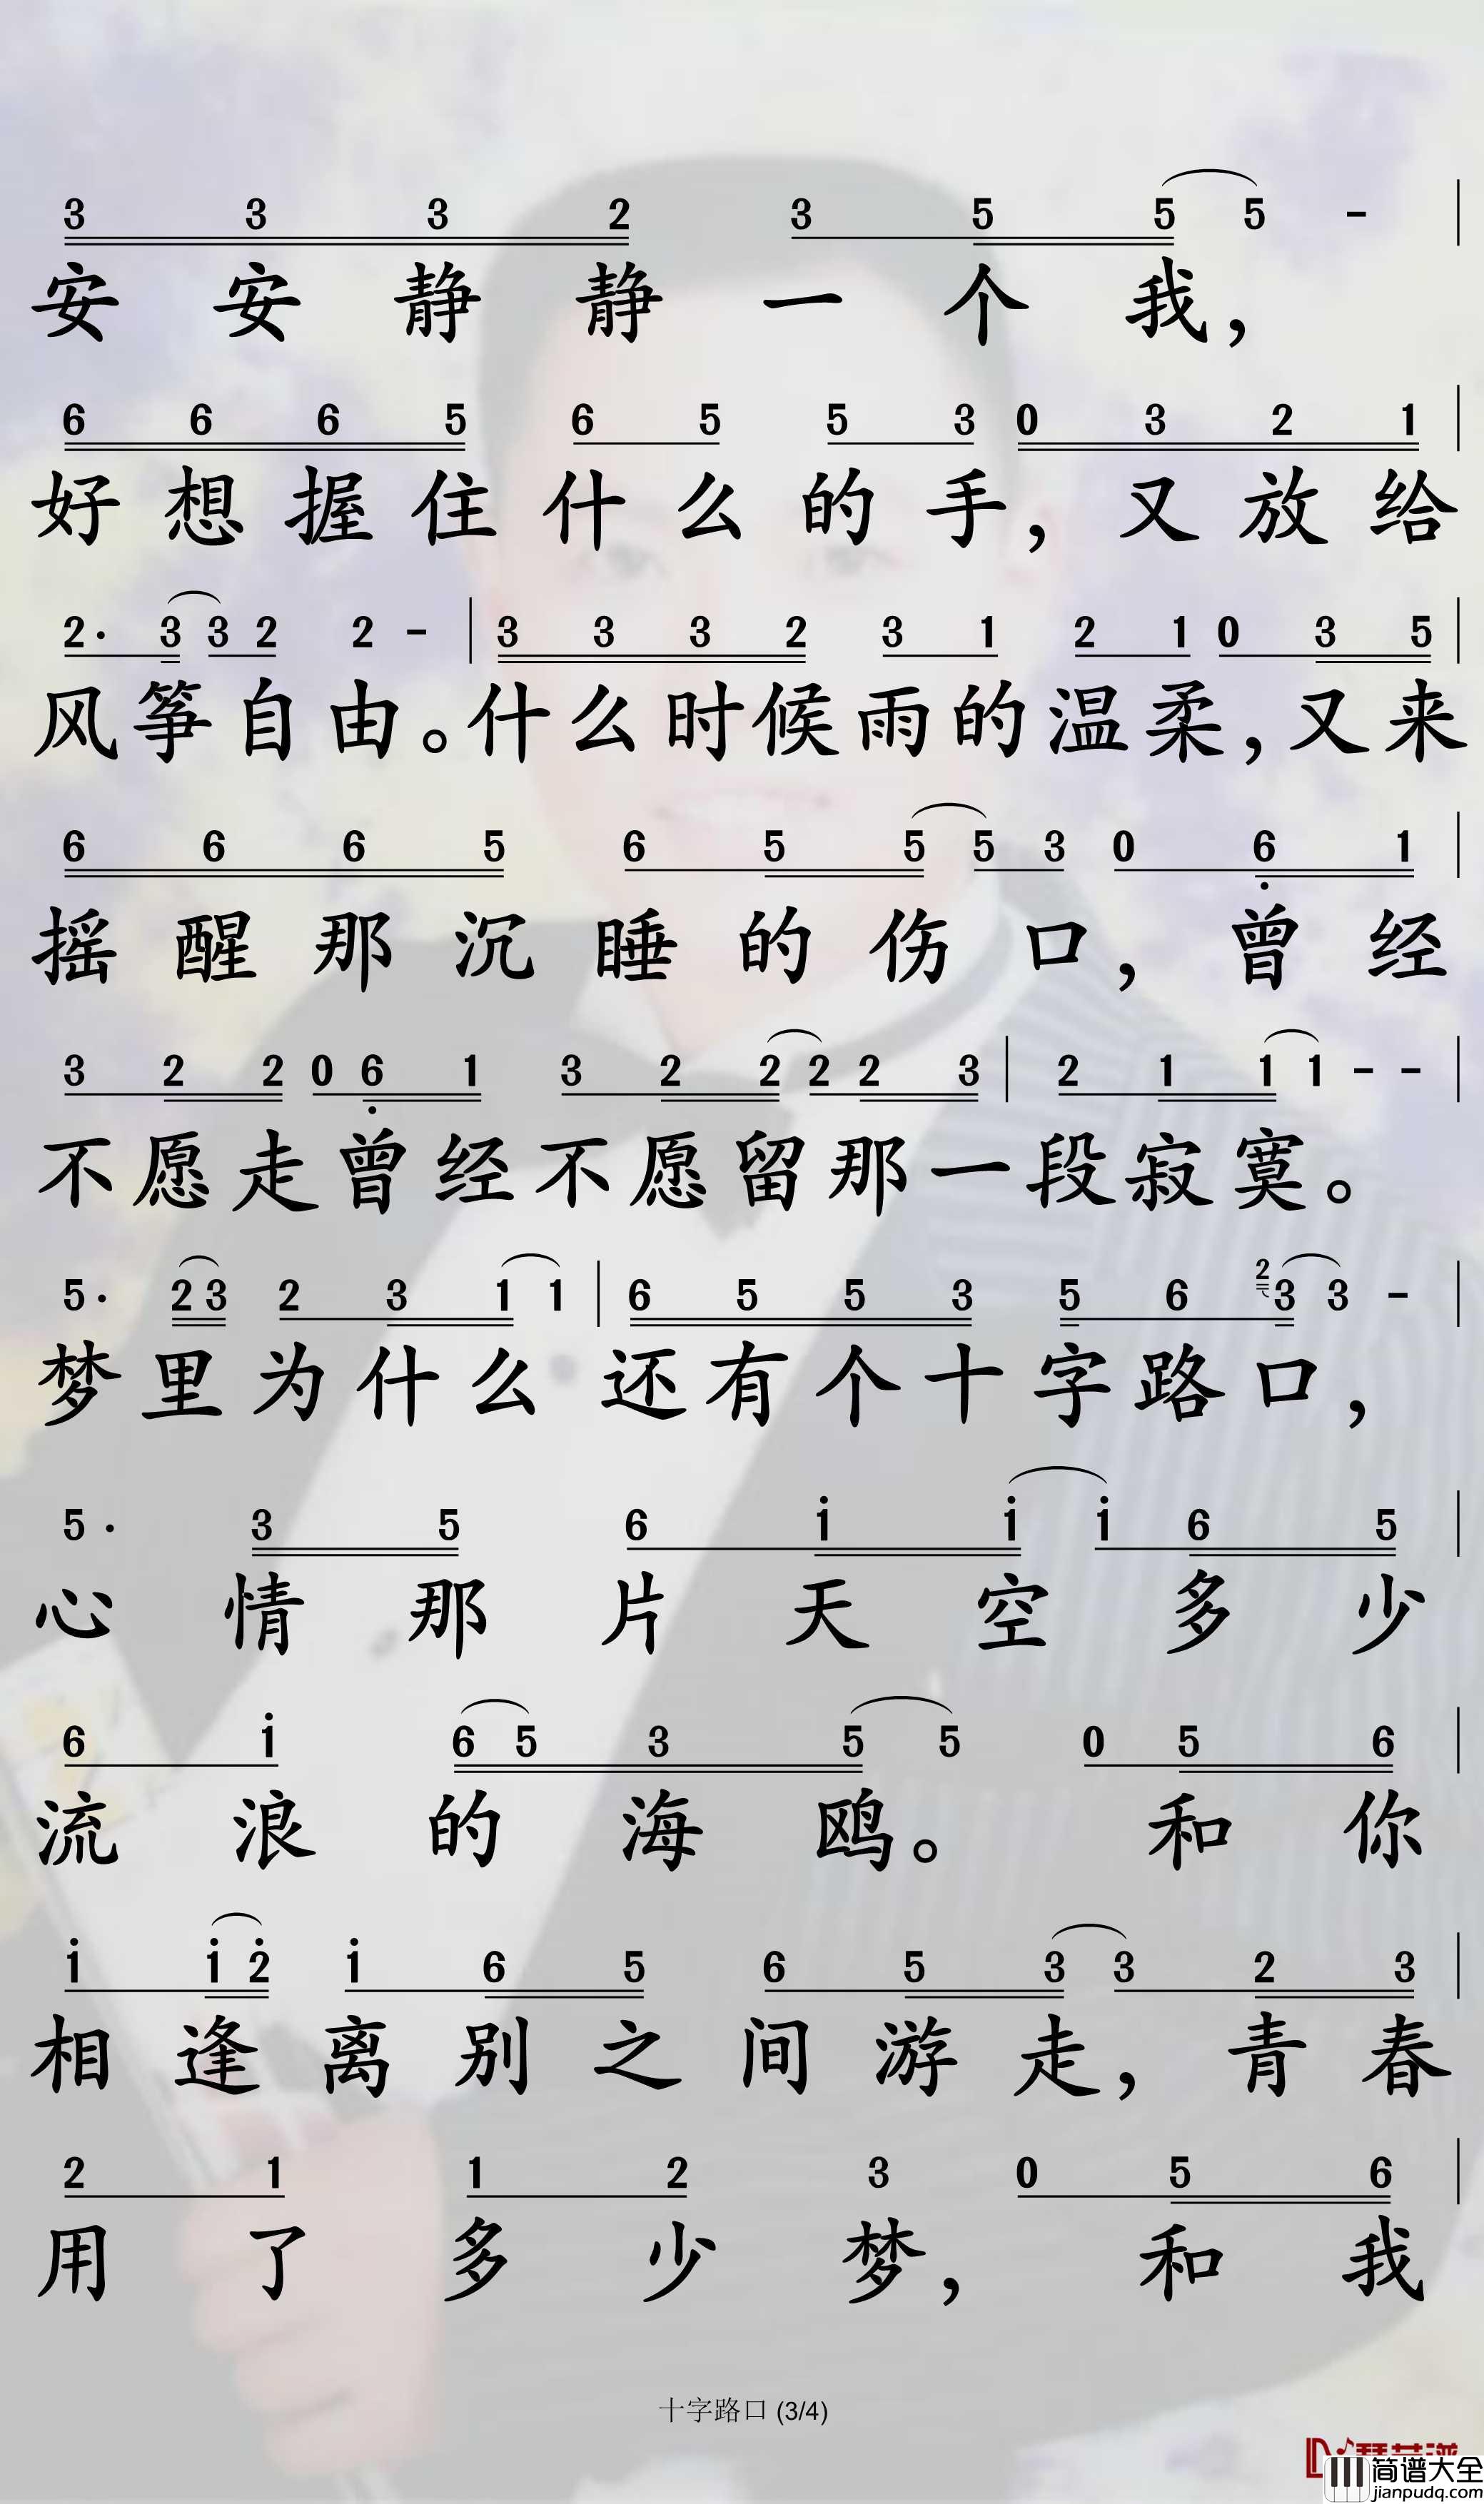 3 3 3 2 3 5 5 5 - |
安安静静一个我，
6 6 6 5 6 5 5 3 0 3 2 1 |
好想握住什么的手，又放给
2· 3 3 2 2 - | 3 3 3 2 3 1 2 1 0 3 5 |
风筝自由。什么时候雨的温柔，又来
6 6 6 5 6 5 5 5 3 0 6̣ 1 |
摇醒那沉睡的伤口，曾经
3 2 2 0 6̣ 1 3 2 2 2 2 3 | 2 1 1 1 - - |
不愿走曾经不愿留那一段寂寞。
5· 2 3 2 3 1 1 | 6 5 5 3 5 6 2 3 3 - |
梦里为什么还有个十字路口，
5· 3 5 6 1̇ 1̇ 1̇ 6 5 |
心情那片天空多少
6 1̇ 6 5 3 5 5 0 5 6 |
流浪的海鸥。和你
1̇ 1̇ 2̇ 1̇ 6 5 6 5 3 3 2 3 |
相逢离别之间游走，青春
2 1 1 2 3 0 5 6 |
用了多少梦，和我
十字路口 (3/4)
简谱大全
jianpudq.com